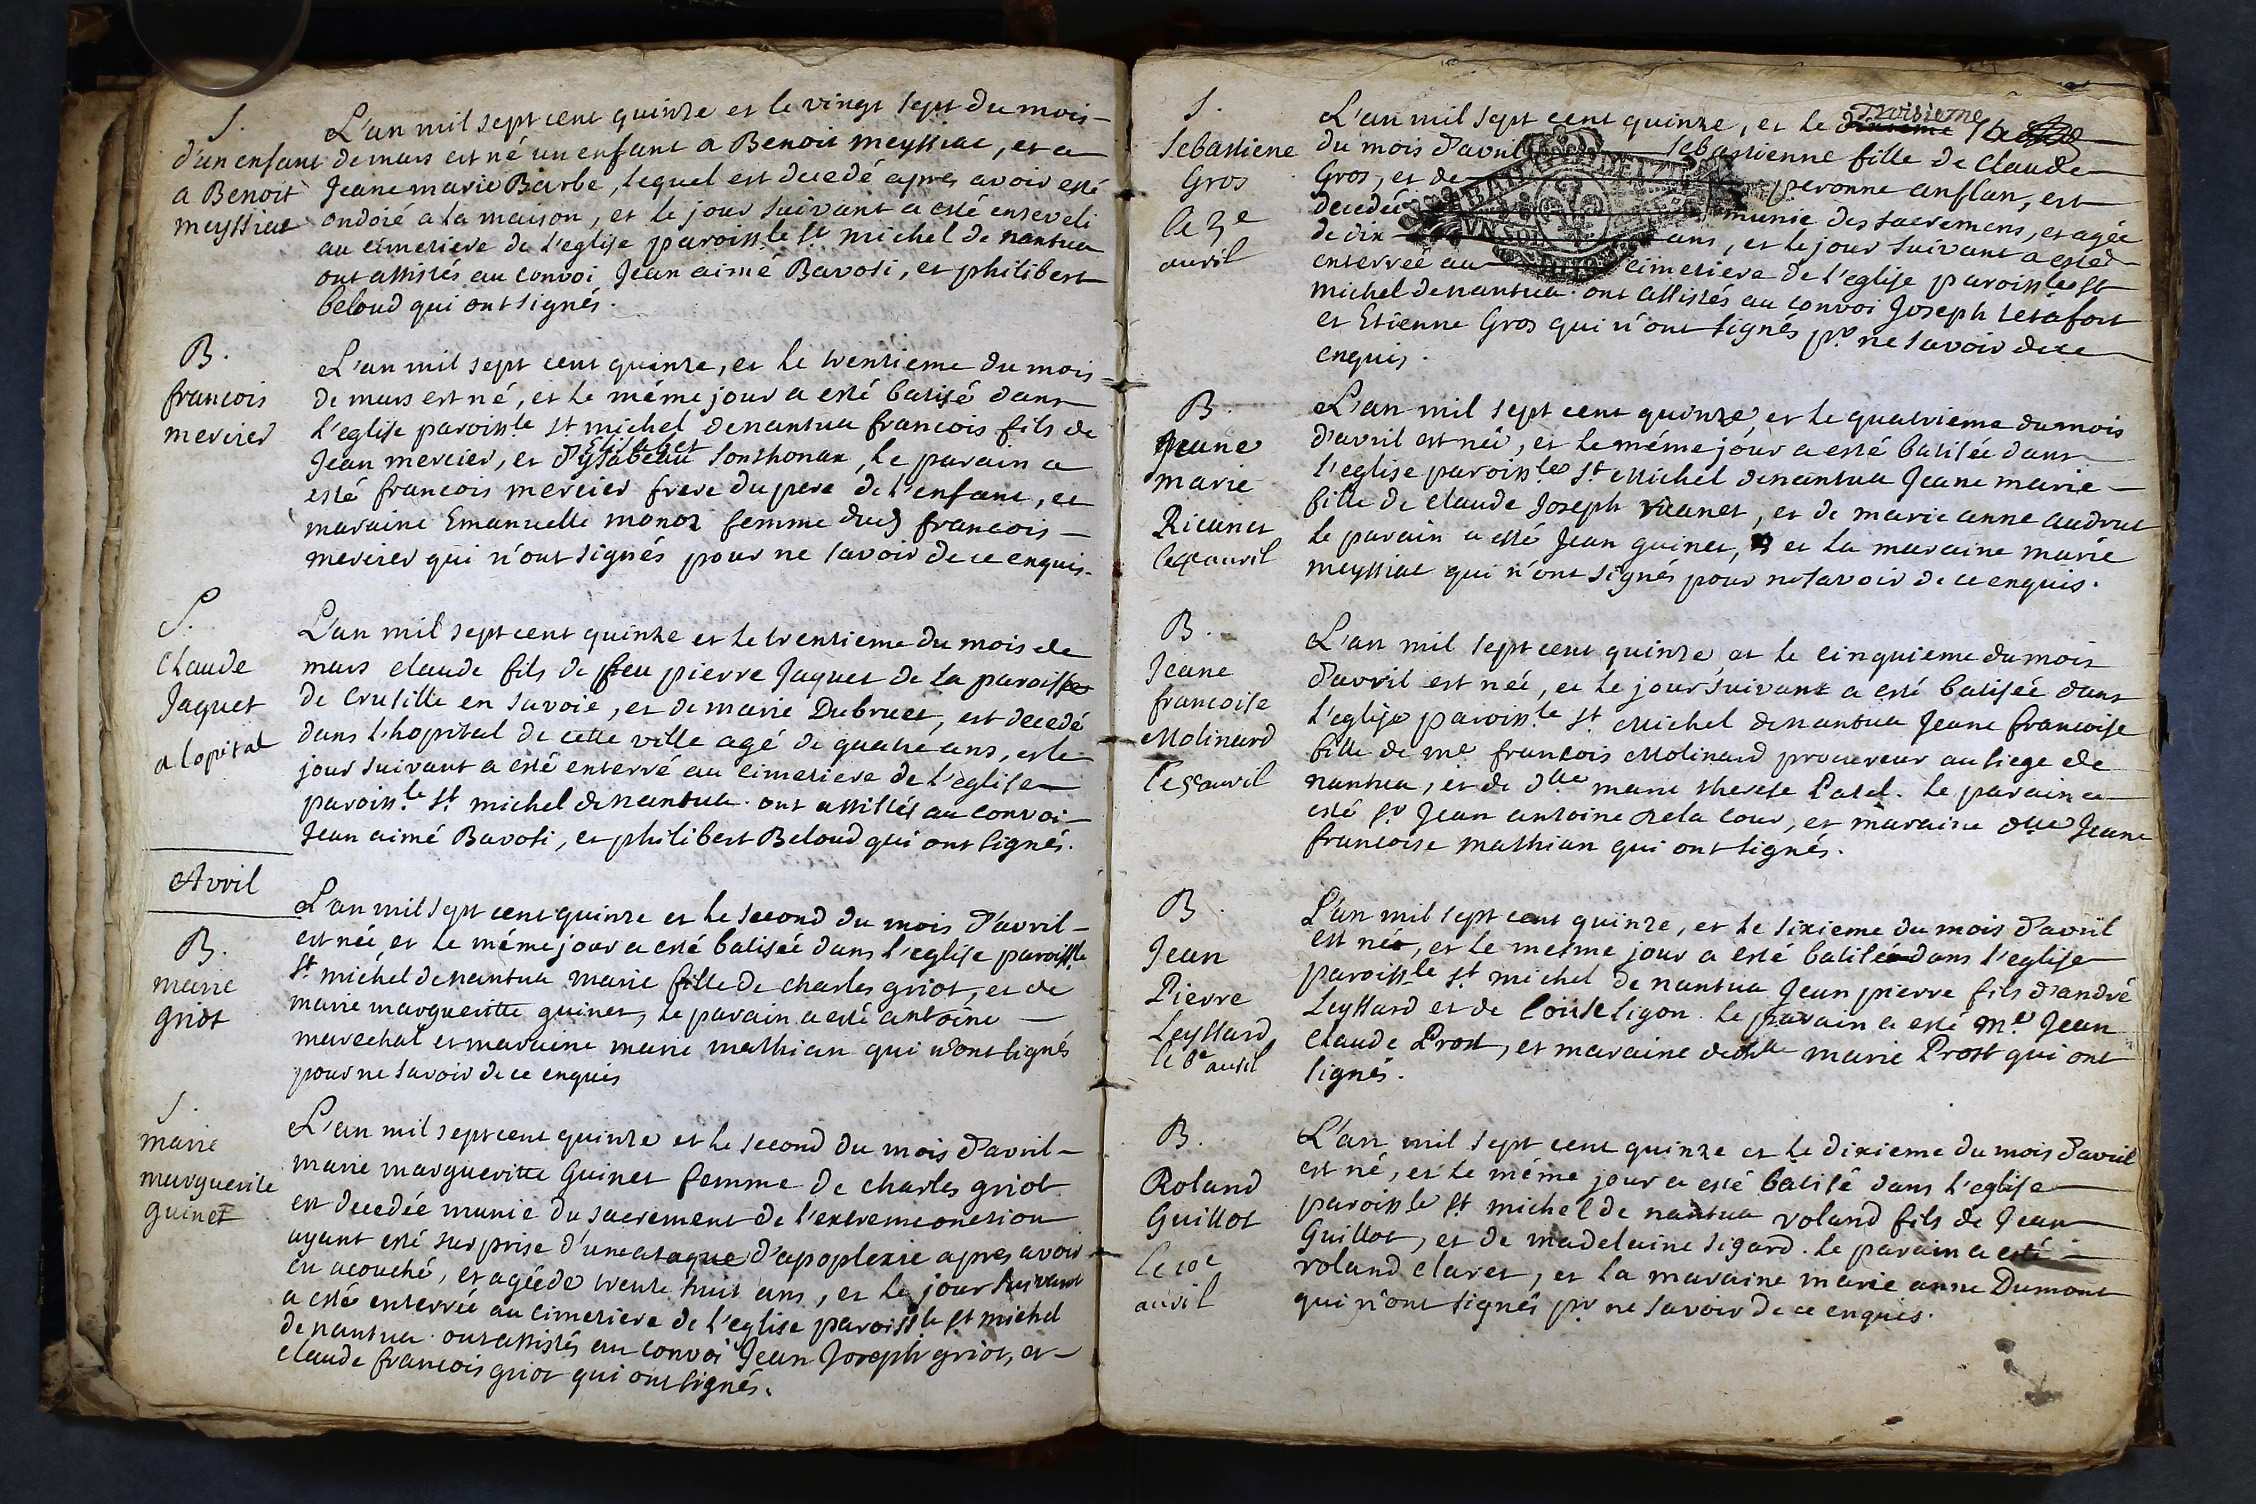 S.
d'un enfant
a Benoit
meyssiat
L'an mil sept cent quinze et le vingt sept du mois
de mars est né un enfant a Benoit meyssiat, et a
Jeane marie Barbe, lequel est decedé apres avoir esté
ondoié a la maison, et le jour suivant a esté enseveli
au cimetiere de l'eglise paroissle St michel de nantua
ont assistés au convoi Jean aimé Bavosi, et philibert
beloud qui ont signés.
B.
francois
mercier
L'an mil sept cent quinze, et le trentieme du mois
de mars est né, et le méme jour a esté batisé dans
l'eglise paroissle St michel de nantua francois fils de
Elisabet
Jean mercier, et d'ysabeau sonthonax, le parain a
esté francois mercier frere du pere de l'enfant, et
maraine Emanuelle monoz femme dud francois
mercier qui n'ont signés pour ne savoir de ce enquis.
S.
Claude
Jaquet
a lopital
L'an mil sept cent quinze et le trentieme du mois de
mars claude fils de feu pierre Jaquet de la paroisse
de Crusille en savoie, et de marie Dubruet, est decedé
dans l'hopital de cette ville agé de quatre ans, et le
jour suivant a esté enterré au cimetiere de l'eglise
paroissle St michel de nantua. ont assistés au convoi
Jean aimé Bavosi, et philibert Beloud qui ont signés.
Avril
B.
marie
griot
L'an mil sept cent quinze et le second du mois d'avril
est neé, et le méme jour a esté batisée dans l'eglise paroissle
St michel de nantua marie fille de charles griot, et de
marie margueritte guinet, le parain a esté antoine
marechal et maraine marie mathian qui n'ont signés
pour ne savoir de ce enquis
S.
marie
marguerite
guinet
L'an mil sept cent quinze et le second du mois d'avril
marie margueritte Guinet femme de charles griot
est decedée munie du sacrement de l'extreme onction
ayant esté surprise d'une ataque d'apoplexie apres avoir
eu acouché, et agée de trente huit ans, et le jour suivant
a esté enterrée au cimetiere de l'eglise paroissle St michel
de nantua. ont assistés au convoi Jean Joseph griot, et
claude francois griot qui ont signés.
S.
Sebastiene
Gros
le 3e
avril
troisieme
L'an mil sept cent quinze, et le dixieme
du mois d'avril sebastienne fille de claude
Gros, et de peronne anflan, est
decedée munie des sacremens, et agée
de dix ans, et le jour suivant a esté
enterrée au cimetiere de l'eglise paroissle St
michel de nantua. ont assistés au convoi Joseph
et Etienne Gros qui n'ont signés pr ne savoir de ce
enquis.
B.
Jeane
marie
Ricanet
le 4e avril
L'an mil sept cent quinze, et le quatrieme du mois
d'avril est née, et le méme jour a esté batisée dans
l'eglise paroissle St Michel de nantua Jeane marie
fille de claude Joseph ricanet, et de marie anne audrut
le parain a esté Jean guinet, et la maraine marie
meyssiat qui n'ont signés pour ne savoir de ce enquis.
B.
Jeane
francoise
Molinard
le 5e avril
L'an mil sept cent quinze et le cinquieme du mois
d'avril est neé, et le jour suivant a esté batisée dans
l'eglise paroissle St Michel de nantua Jeane francoise
fille de me francois Molinard procureur au siege de
nantua, et de dlle marie therese Patel. le parain a
esté sr Jean antoine Dela cour, et maraine dlle Jeane
francoise mathian qui ont signés.
B.
Jean
Pierre
Leyssard
le 6e avril
L'an mil sept cent quinze, et le sixieme du mois d'avril
est né, et le mesme jour a esté batisé dans l'eglise
paroissle St michel de nantua Jean pierre fils d'andré
Leyssard et de Louise ligon. le parain a esté Me Jean
Claude Prost, et maraine marie Prost qui ont
signés.
B.
Roland
Guillot
le 10e
avril
L'an mil sept cent quinze et le dixieme du mois d'avril
est né, et le méme jour a esté batisé dans l'eglise
paroissle St michel de nantua roland fils de Jean
Guillot, et de madeleine sigard. le parain a esté
roland claret, et la maraine marie anne Dumont
qui n'ont signés pr ne savoir de ce enquis.